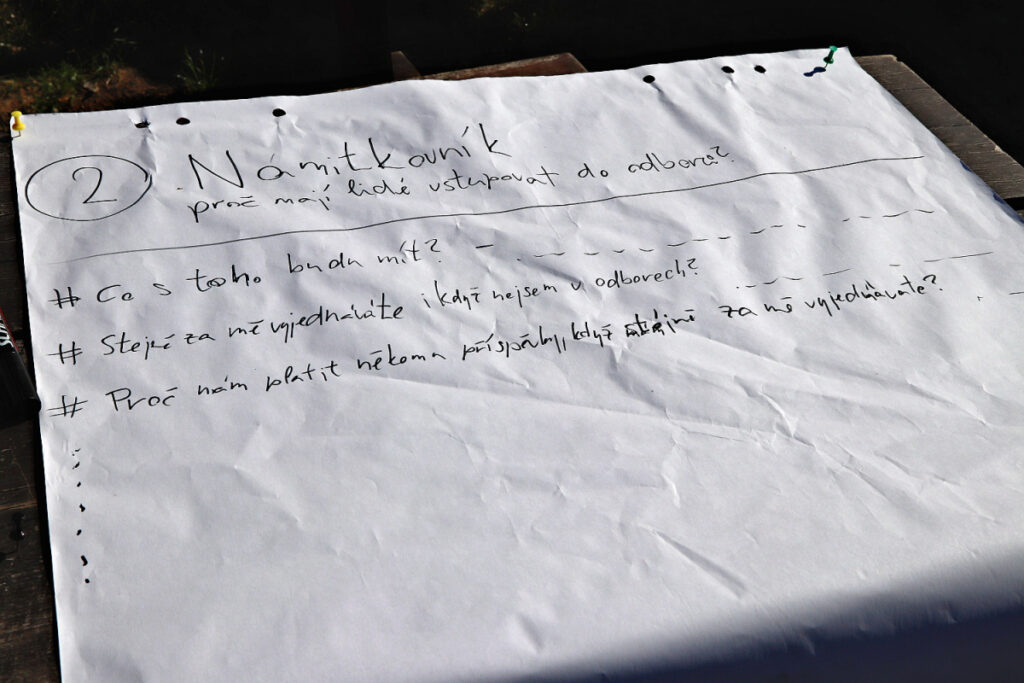 2 Námitkovník
proč mají lidé vstupovat do odborů?
# Co s toho budu mít? -
# Stejně za mě vyjednáváte i když nejsem v odborech?
# Proč nám platit někomu příspěvky, když stejně za mě vyjednáváte?